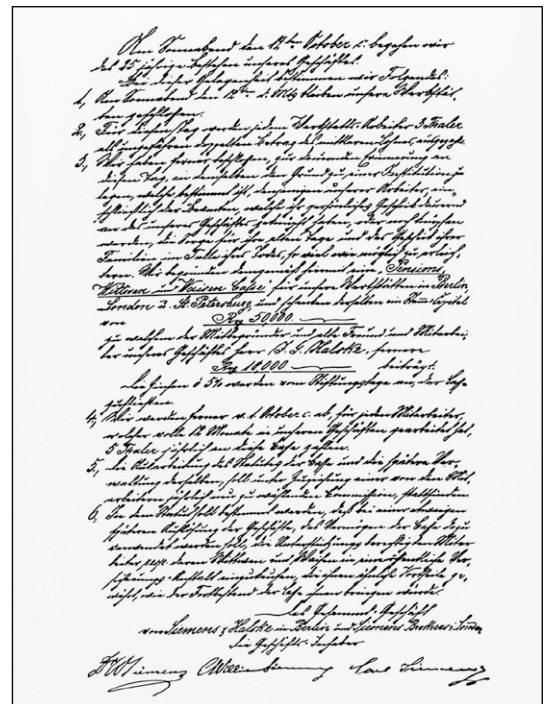 Am Sonnabend den 12ten October c. begehen wir
das 25 jährige Bestehen unseres Geschäftes.
Bei dieser Gelegenheit bestimmen wir Folgendes:
1, Am Sonnabend den 12ten d. Mts bleiben unsere Werkstät,
ten geschlossen.
2, Für diesen Tag werden jedem Werkstatts-Arbeiter 3 Thaler
als ungefähren doppelten Betrag des mittlern Lohnes, ausgezahlt.
3, Wir haben ferner beschlossen, zur dauernden Erinnerung an
diesen Tag, an demselben den Grund zu einer Institution zu
legen, welche bestimmt ist, denjenigen unserer Arbeiter, ein,
schliesslich der Beamten, welche ihr persönliches Geschick dauernd
an das unseres Geschäftes geknüpft haten, oder noch knüpfen
werden, die Sorge für ihre alten Tage und das Geschick ihrer
Familien im Falle ihres Todes, so viel wie möglich zu erleich,
tern. Wir begründen demgemäss hiermit eine Pensions,
Wittwen und Waisen Casse für unsere Werkstätten in Berlin,
London u. St. Petersburg und schenken derselben ein Stamm-Capital
von
50000.
zu welchem der Mitbegründer und alte Freund und Mitarbei,
ter unseres Geschäftes Herr J. G. Halske, ferner
10,000 beiträgt.
Die Zinsen à 5% werden vom Stiftungstage an, der Casse
zufliessen.
4, Wir werden ferner v. 1. October. c. ab, für jeden Mitarbeiter,
welcher volle 12 Monate in unseren Geschäften gearbeitet hat,
5 Thaler jährlich an diese Casse zahlen.
5, Die Ausarbeitung des Statutes der Casse und die spätere Ver,
waltung derselben, soll unter Zuziehung einer von den Mit,
arbeitern jährlich neu zu wählenden Commission, stattfinden
6, In dem Statut soll bestimmt werden, dass bei einer etwaigen
späteren Auflösung der Geschäfte, das Vermögen der Casse dazu
verwendet werden soll, die Unterstützungs berechtigten Mitar
beiter, resp. deren Wittwen und Waisen in eine öffentliche Ver,
sicherungs-Anstalt einzukaufen, die ihnen ähnliche Vortheile ge,
währt, wie der Fortbestand der Casse ihnen bringen würde.
Das Gesammt-Geschäft
von Siemens & Halske in Berlin und Siemens Brothers i. London
Die Geschäfts-Inhaber
Siemens Siemens Carl Siemens